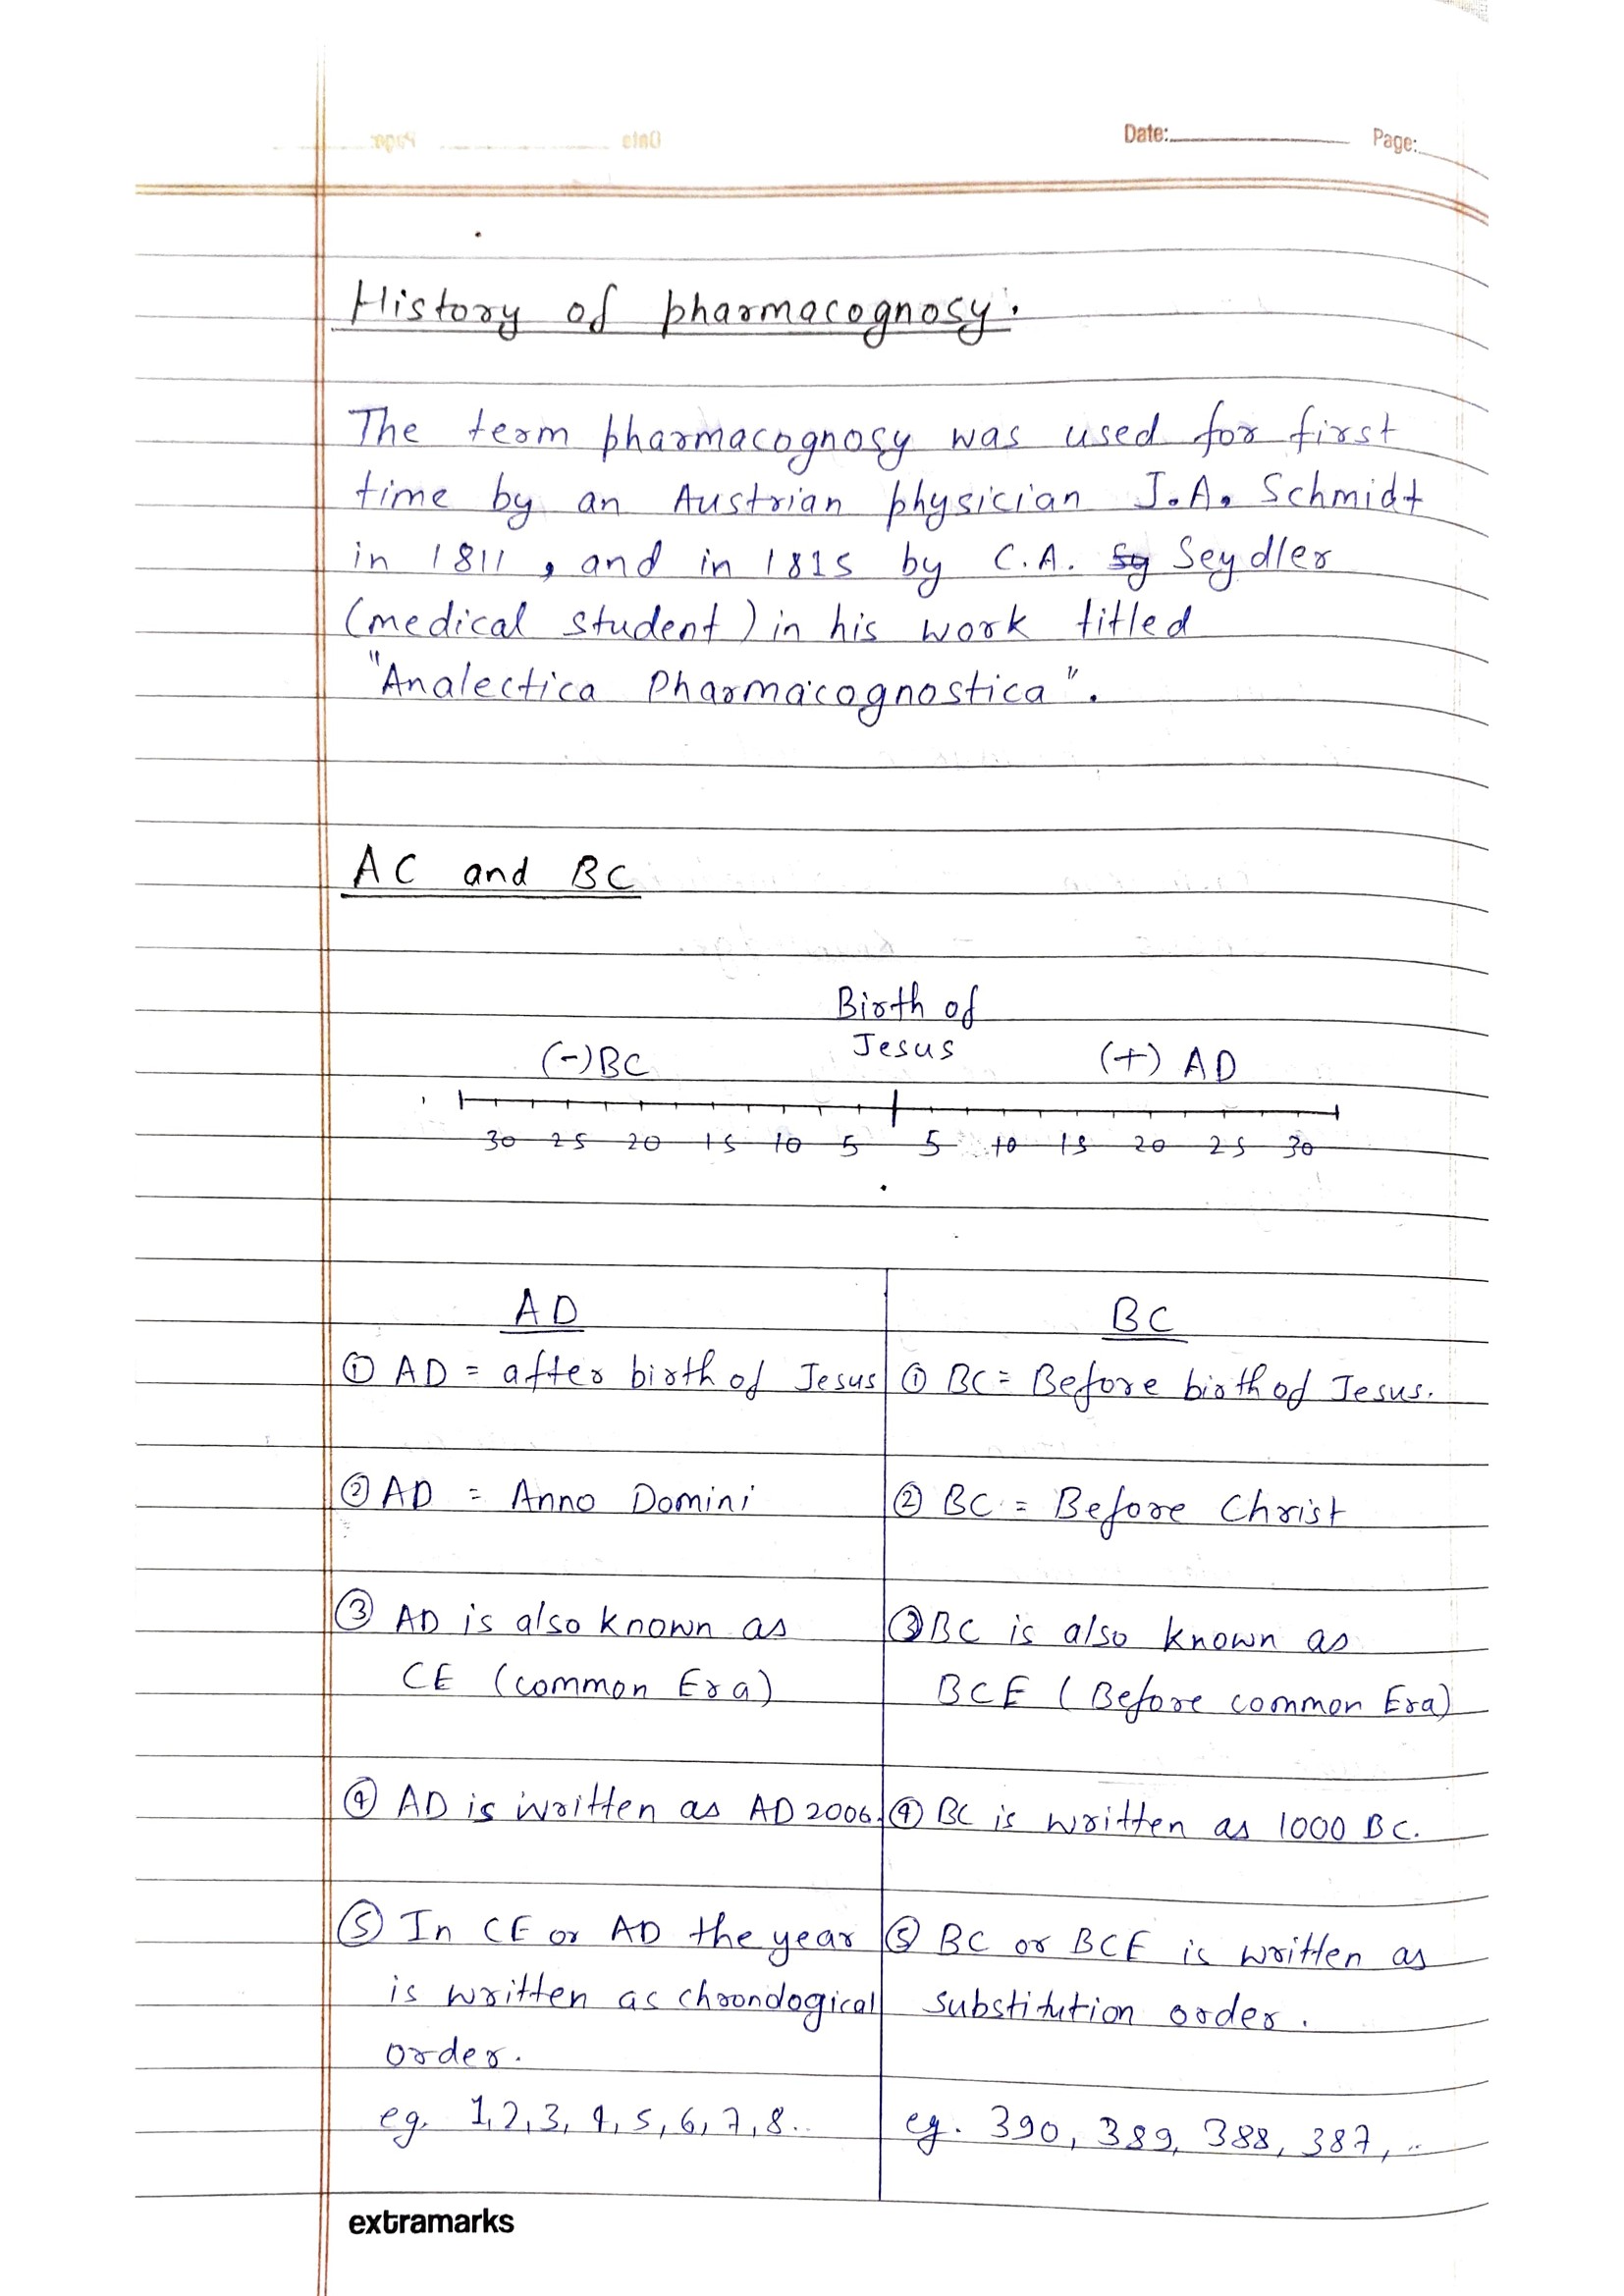 Date: Page:
History of pharmacognosy.
The term pharmacognosy was used for first
time by an Austrian physician J.A. Schmidt
in 1811, and in 1815 by C.A. Sy Seydler
(medical student) in his work titled
"Analectica Pharmacognostica".
AC and BC
Birth of
Jesus
(-)BC (+) AD
30 25 20 15 10 5 5 10 15 20 25 30
AD BC
① AD = after birth of Jesus ① BC = Before birth of Jesus.
② AD = Anno Domini ② BC = Before Christ
③ AD is also known as ③ BC is also known as
CE (common Era) BCE (Before common Era)
④ AD is written as AD 2006. ④ BC is written as 1000 BC.
⑤ In CE or AD the year ⑤ BC or BCE is written as
is written as choondogical substitution order.
order.
eg. 1, 2, 3, 4, 5, 6, 7, 8.. eg. 390, 389, 388, 387, ..
extramarks